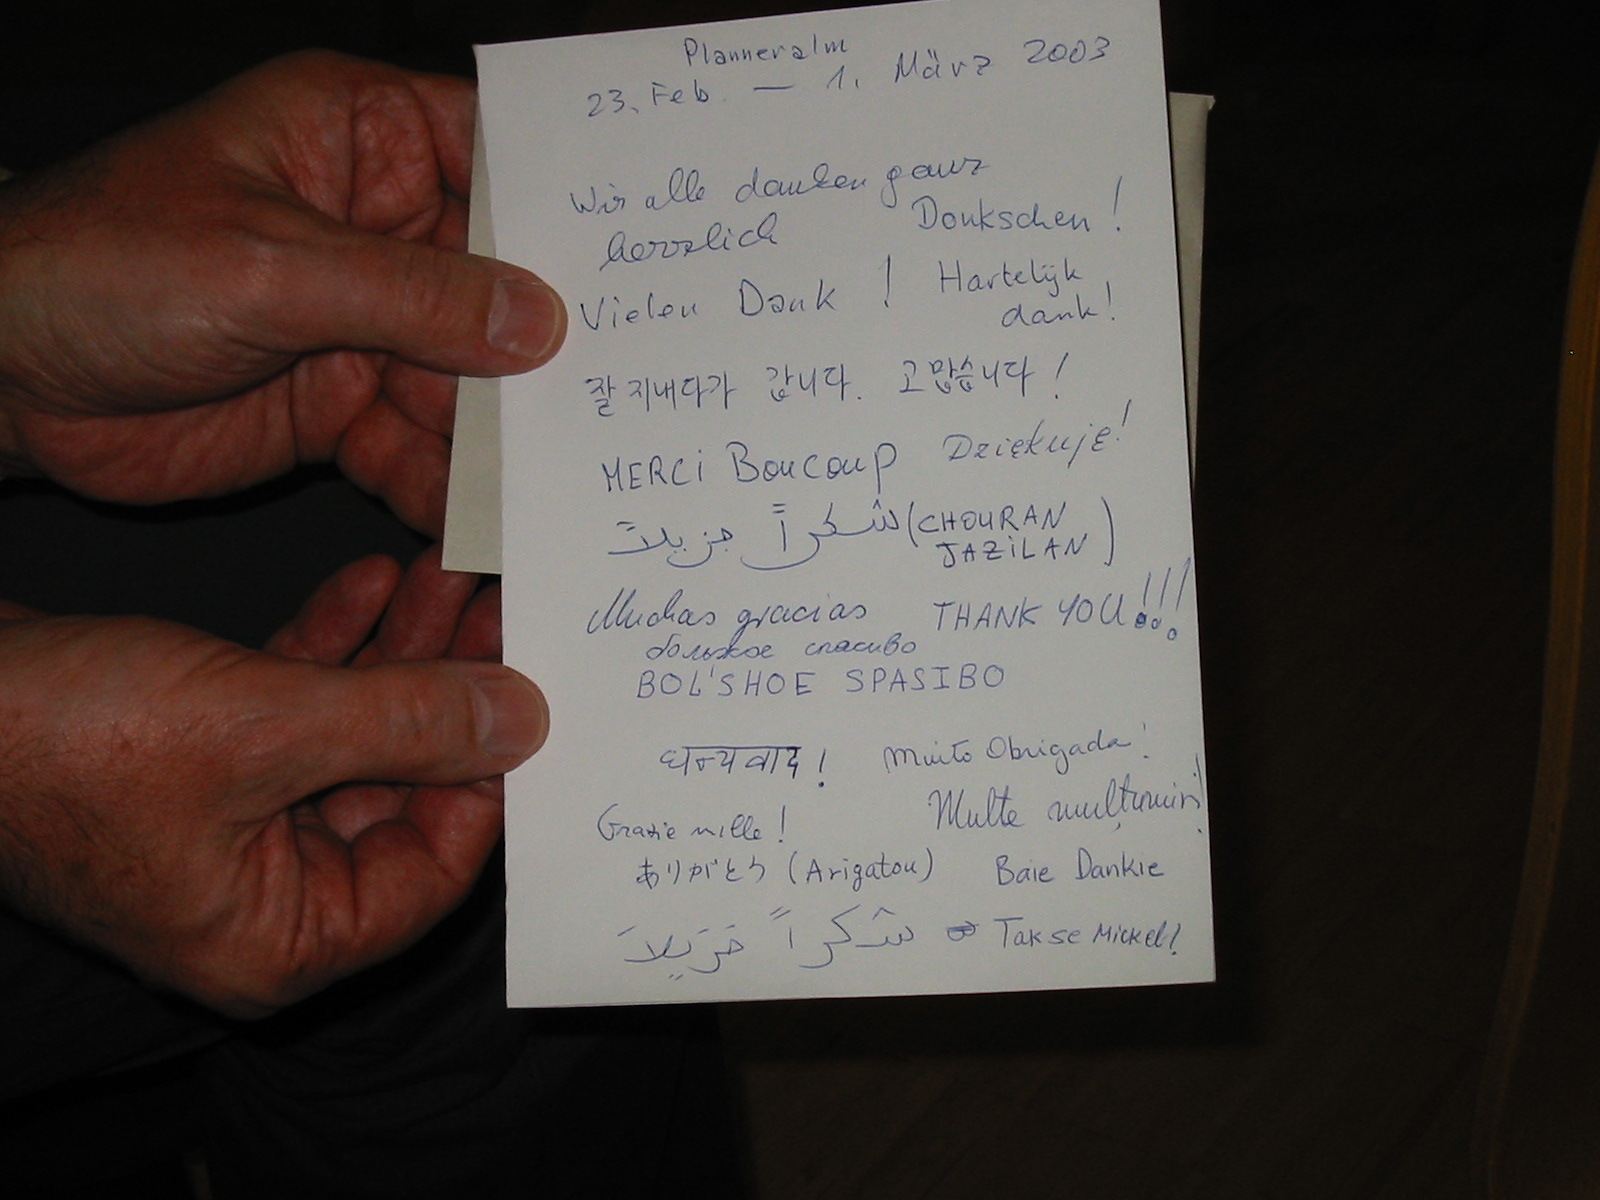 Planneralm
23. Feb. — 1. März 2003
Wir alle danken ganz
herzlich
Donkschen!
Vielen Dank!
Hartelijk
dank!
잘 지내다가 갑니다. 고맙습니다!
MERCi Boucoup
Dziękuję!
شكراً جزيلاً (CHOURAN
JAZiLAN)
Muchas gracias
THANK YOU!!!
большое спасибо
BOL'SHOE SPASIBO
धन्यवाद!
Muito Obrigada!
Grazie mille!
Multe mulţumiri!
ありがとう (Arigatou)
Baie Dankie
شكراً جزيلاً
Takse Mickel!